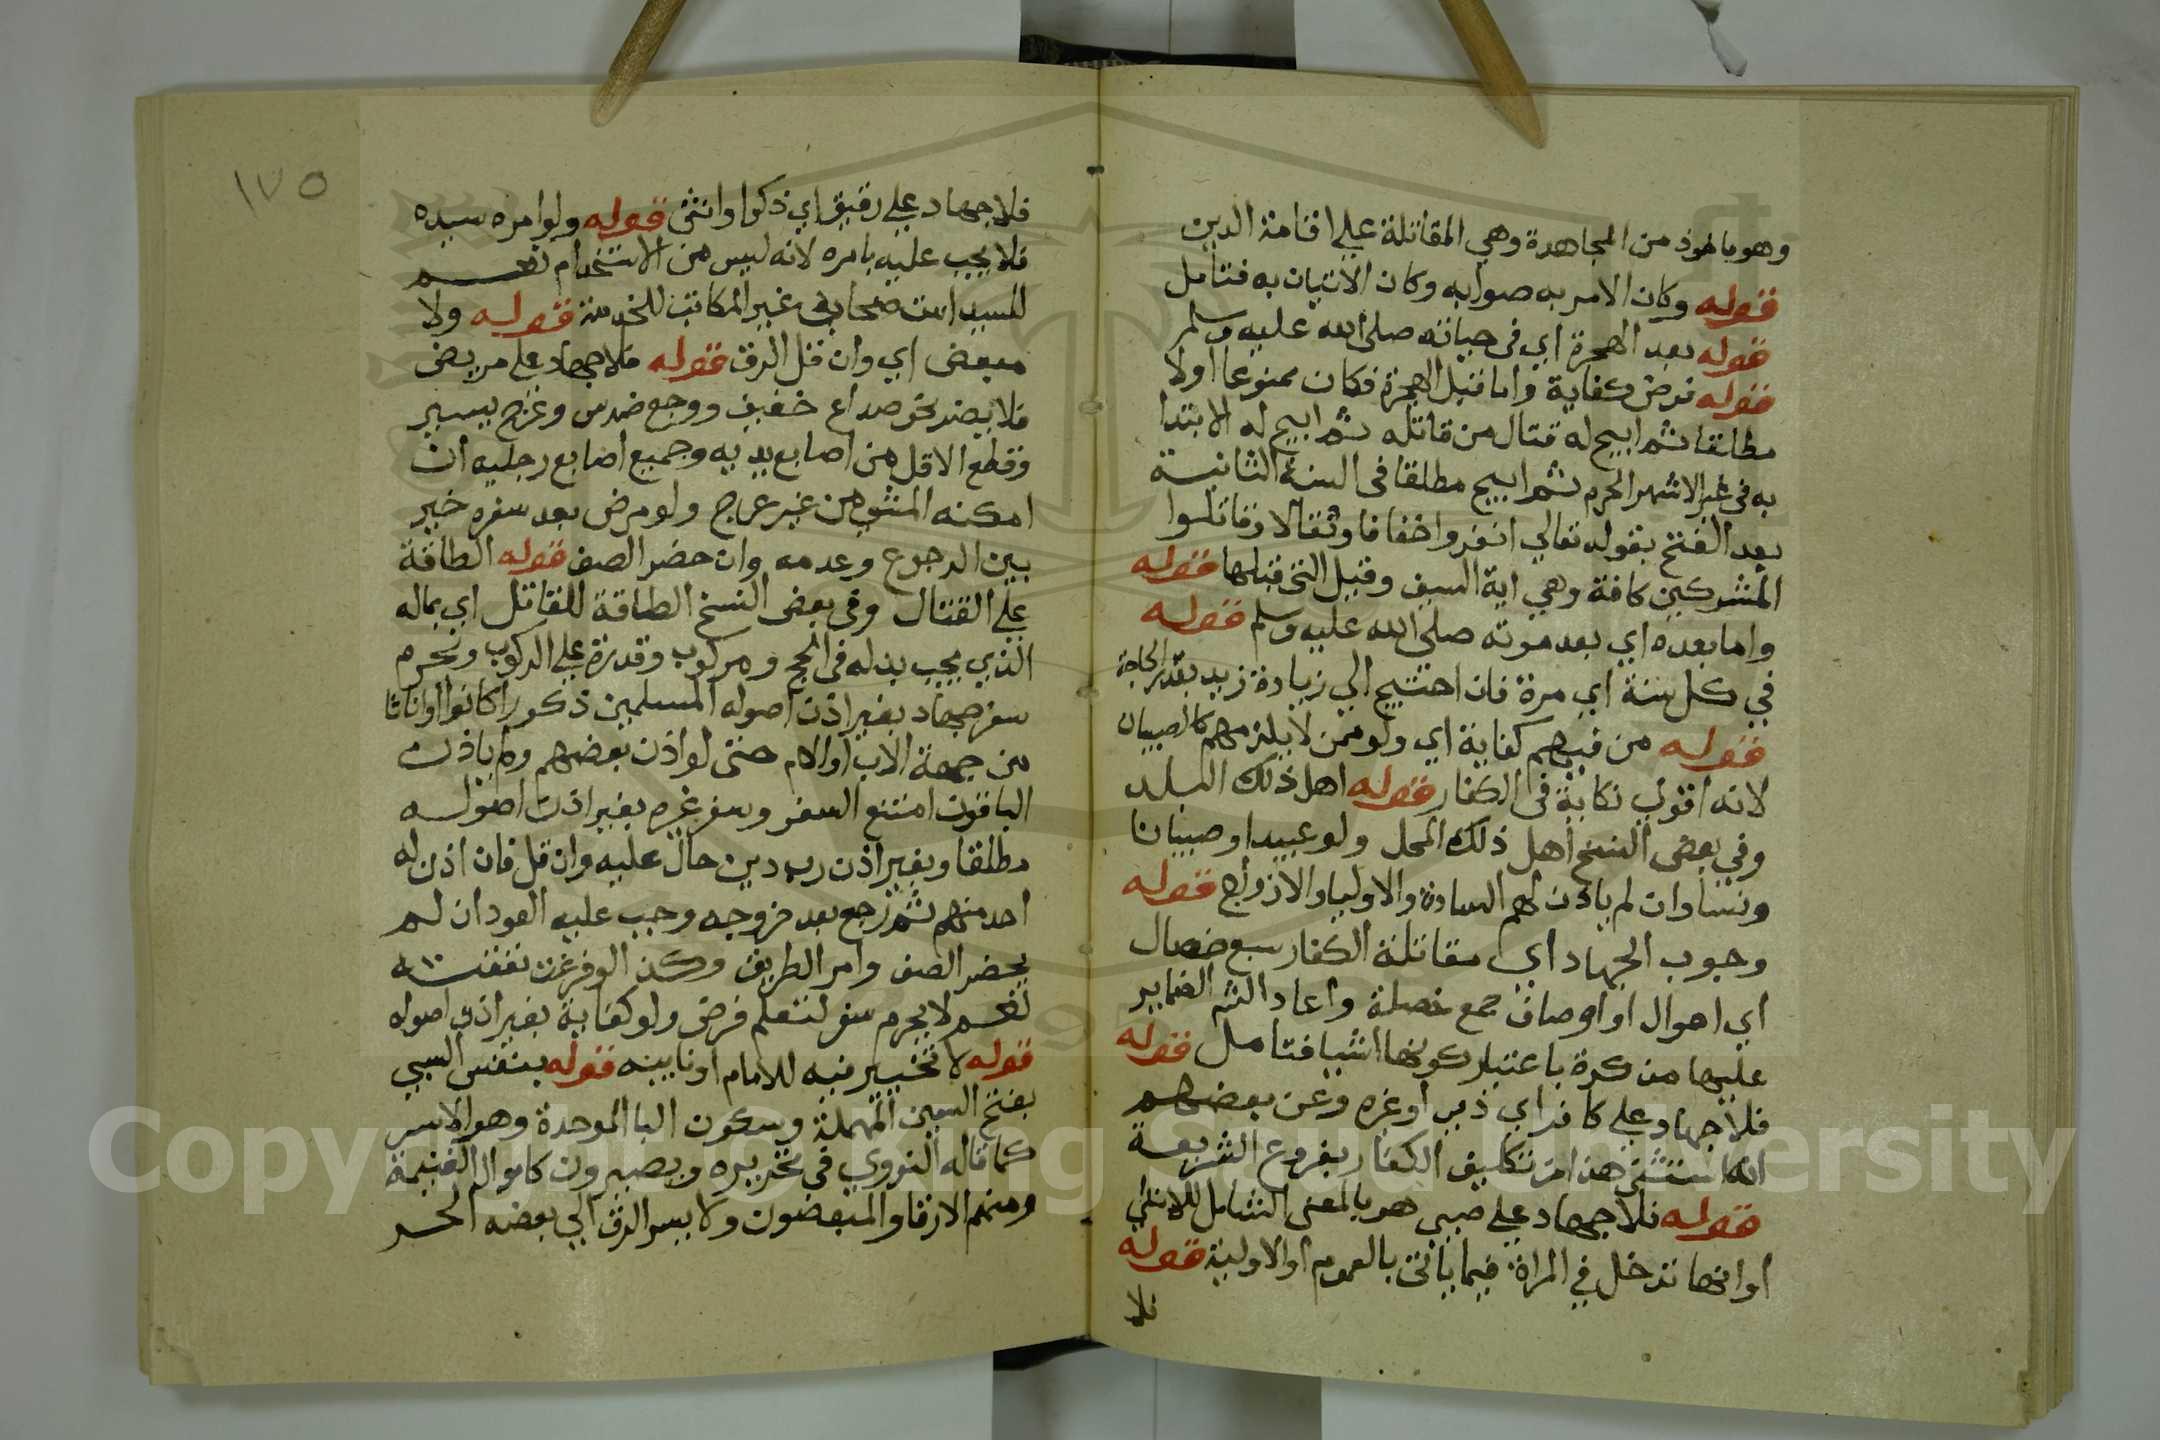 وهو ماخوذ من المجاهدة وهي المقاتلة علي اقامة الدين
قوله وكان الامر به صوابه وكان الاتيان به فتامل
قوله بعد الهجرة اي في حياته صلى الله عليه وسلم
قوله فرض كفاية واما قبل الهجرة فكان ممنوعا اولا
مطلقا ثم ابيح له قتال من قاتله ثم ابيح له الابتدا
به في غير الاشهر الحرم ثم ابيح مطلقا في السنة الثانية
بعد الفتح بقوله تعالي انفروا خفافا وثقالا وقاتلوا
المشركين كافة وهي اية السيف وقيل التي قبلها قوله
واما بعده اي بعد موته صلى الله عليه وسلم قوله
في كل سنة اي مرة فان احتيج الي زيادة زيد بقدر الحاجة
قوله من فيهم كفاية اي ولو ممن لا يلزمهم كالصبيان
لانه اقوي نكاية في الكفار قوله اهل ذلك البلد
وفي بعض النسخ اهل ذلك المحل ولو عبيدا وصبيانا
ونسا وان لم ياذن لهم السادة والاوليا والازواج قوله
وجوب الجهاد اي مقاتلة الكفار سبع خصال
اي احوال او اوصاف جمع خصلة واعاد الشم الضماير
عليها مذكرة باعتبار كونها اشيا فتامل قوله
فلا جهاد علي كافر اي ذمي او غيره وعن بعضهم
انه استثنى هذا من تكليف الكفار بفروع الشريعة
قوله فلا جهاد علي صبي هو بالمعنى الشامل للانثي
او انها تدخل في المراة فيما ياتي بالعموم او الاولية قوله
فلا
١٧٥
فلا جهاد علي رقيق اي ذكرا وانثى قوله ولو امره سيده
فلا يجب عليه بامره لانه ليس من الاستخدام نعم
للسيد استصحاب غير المكاتب للخدمة قوله ولا
مبعض اي وان قل الرق قوله فلا جهاد علي مريض
فلا يضر نحو صداع خفيف ووجع ضرس وعرج يسير
وقطع الاقل من اصابع يديه وجميع اصابع رجليه ان
امكنه المشي من غير عرج ولو مرض بعد سفره خير
بين الرجوع وعدمه وان حضر الصف قوله الطاقة
علي القتال وفي بعض النسخ الطاقة للقاتل اي بماله
الذي يجب بذله في الحج ومركوب وقدرة علي الركوب ويحرم
سفر جهاد بغير اذن اصوله المسلمين ذكورا كانوا او اناثا
من جهة الاب او الام حتى لو اذن بعضهم ولم ياذن
الباقون امتنع السفر وسفر غيره بغير اذن اصوله
مطلقا وبغير اذن رب دين حال عليه وان قل فان اذن له
احد منهم ثم رجع بعد خروجه وجب عليه العود ان لم
يحضر الصف وامن الطريق وكذا لو فرغت نفقته
نعم لا يحرم سفر لتعلم فرض ولو كفاية بغير اذن اصوله
قوله لا تخيير فيه للامام او نايبه قوله بنفس السبي
بفتح السين المهملة وسكون البا الموحدة وهو الاسر
كما قاله النووي في تحريره ويصيرون كاموال الغنيمة
ومنهم الارقا والمبعضون ولا يسر الرق الي بعضه الحر
Copyright © King Saud University